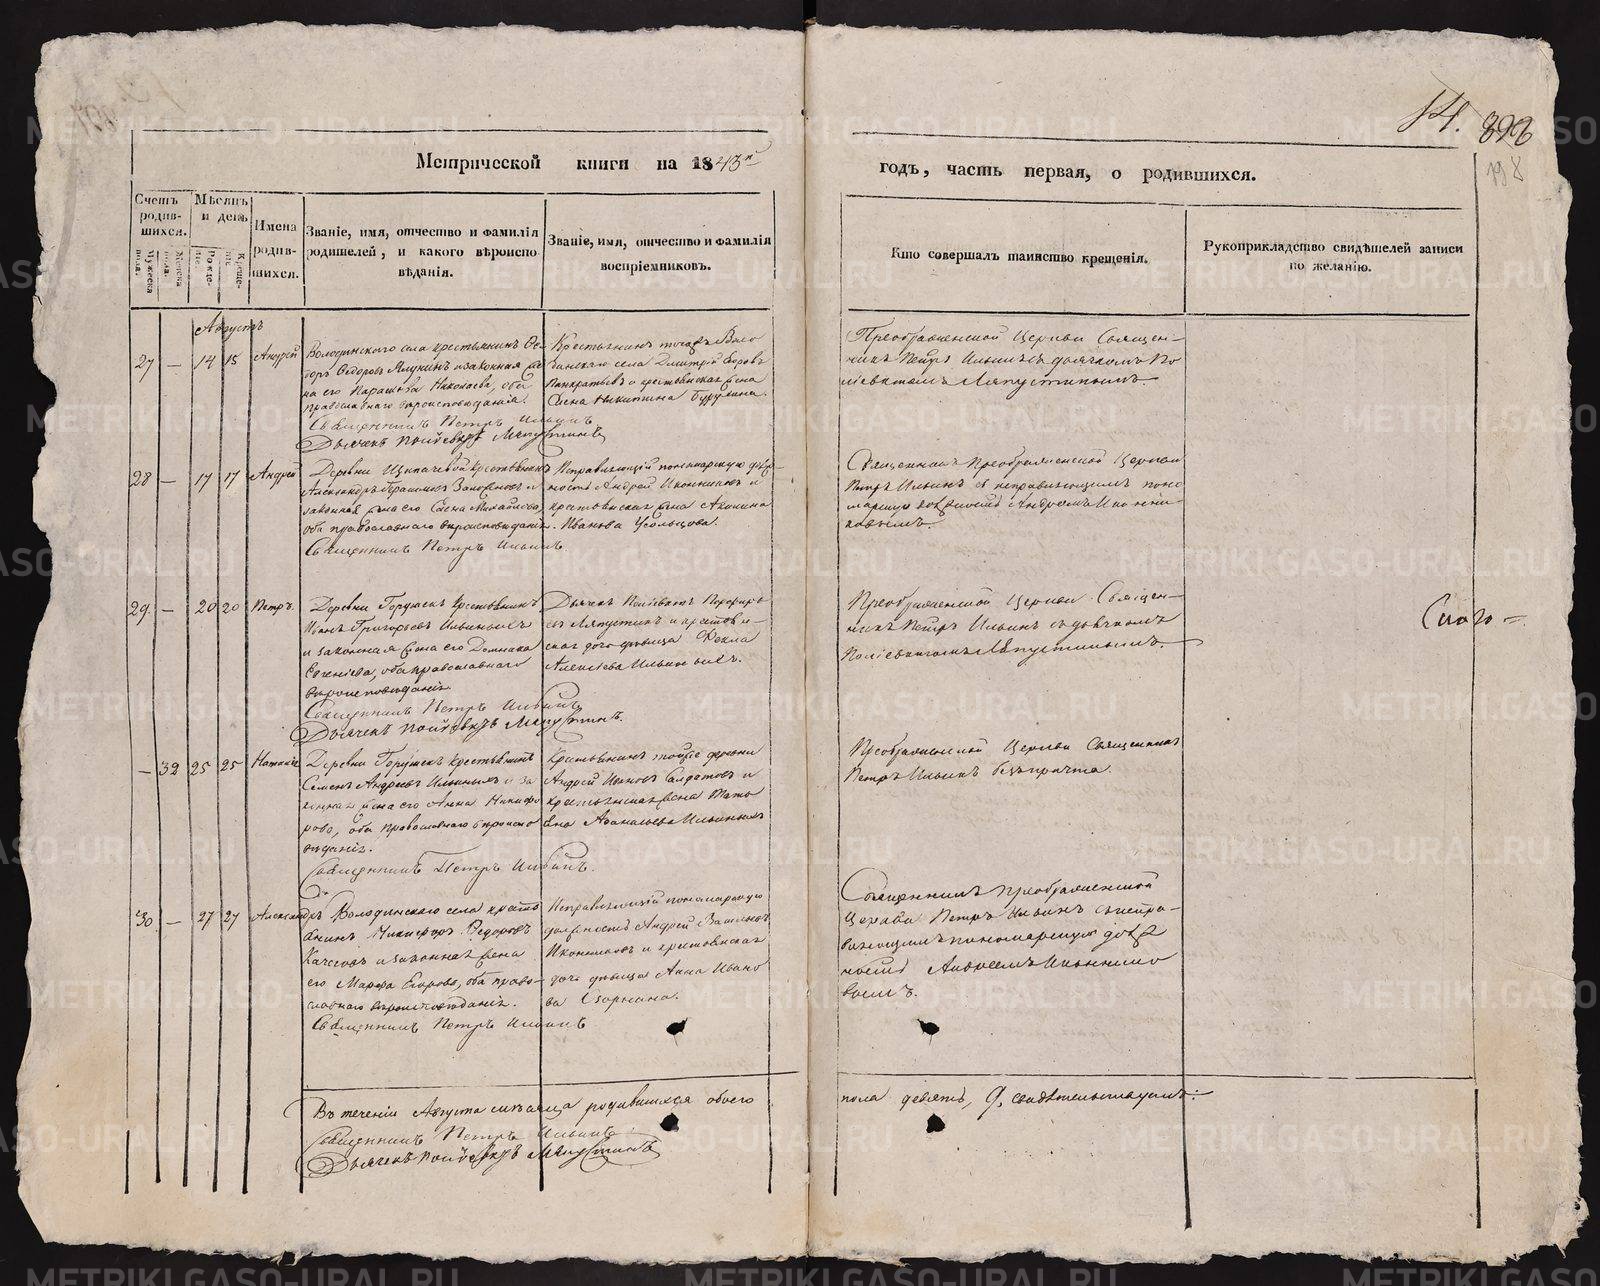 14. 398
Метрической книги на 1843й
годъ, часть первая, о родившихся.
Счетъ родив-шихся.
Мужеска пола.
Женска пола.
Мѣсяцъ и день
Рожде-
Креще-
Имена родив-шихся.
Званіе, имя, отчество и фамилія родителей, и какого вѣроиспо-вѣданія.
Званіе, имя, отчество и фамилія воспріемниковъ.
Кто совершалъ таинство крещенія.
Рукоприкладство свидѣтелей записи по желанію.
Августъ
27 — 14 15 Андрей
крестьянинъ Ѳе-
доръ Ѳедоровъ и законная же-
на его Параскева Николаева, оба
православнаго вѣроисповѣданія.
Священникъ Петръ Ильинъ
Дьячекъ Полiевктъ Ляпустинъ
Крестьянинъ тогожъ Воло
динскаго села Дмитрій Егоровъ
Панкратьевъ и крестьянская жена
Елена Никитина
Преображенской Церкви Священ-
никъ Петръ Ильинъ съ дьячкомъ По
ліевктомъ Ляпустинымъ.
28 — 17 17 Андрей
Деревни крестьянинъ
Александръ Герасимовъ и
законная жена его Елена Михайлова,
оба православнаго вѣроисповѣданія.
Священникъ Петръ Ильинъ
Исправляющій пономарскую долж-
ность Андрей Иконниковъ и
крестьянская жена Акилина
Иванова Усольцова.
Священникъ Преображенской Церкви
Петръ Ильинъ съ исправляющимъ поно-
марскую должность Андреемъ Иконни-
ковымъ.
29. — 20 20 Петръ.
Деревни Горушекъ крестьянинъ
Иванъ Григорьевъ Ильиныхъ
и законная жена его Домника
Евгеніева, оба православнаго
вѣроисповѣданія.
Священникъ Петръ Ильинъ
Дьячекъ Полiевктъ Ляпустинъ.
Дьячекъ Поліевктъ Порфирь-
евъ Ляпустинъ и крестья-
ская дочь дѣвица Ѳекла
Алексіева Ильиныхъ.
Преображенской Церкви Священ-
никъ Петръ Ильинъ съ дьячкомъ
Поліевктомъ Ляпустинымъ.
— 32 25 25 Наталія
Деревни Горушекъ крестьянинъ
Семенъ Андреевъ Ильиныхъ и за
конная жена его Анна Никифо
рова, оба православнаго вѣроиспо
вѣданія.
Священникъ Петръ Ильинъ.
Крестьянинъ тойже деревни
Андрей Ивановъ Солдатовъ и
крестьянская жена Тать
яна Аѳанасьева Ильиныхъ
Преображенской Церкви Священникъ
Петръ Ильинъ безъ причта.
30. — 27 27 Александръ
Володинскаго села кресть
янинъ Никифоръ Ѳедоровъ
Качеговъ и законная жена
его Марѳа Егорова, оба право-
славнаго вѣроисповѣданія.
Священникъ Петръ Ильинъ
Исправляющій пономарскую
должность Андрей Васильевъ
Иконниковъ и крестьянская
дочь дѣвица Анна Ивано
ва
Священникъ Преображенской
Церкви Петръ Ильинъ съ испра-
вляющимъ пономарскую долж
ность Андреемъ Иконнико
вымъ.
Въ теченіи Августа мѣсяца родившихся обоего
пола девять, 9, свидѣтельствуемъ:
Священникъ Петръ Ильинъ
Дьячекъ Полiевктъ Ляпустинъ